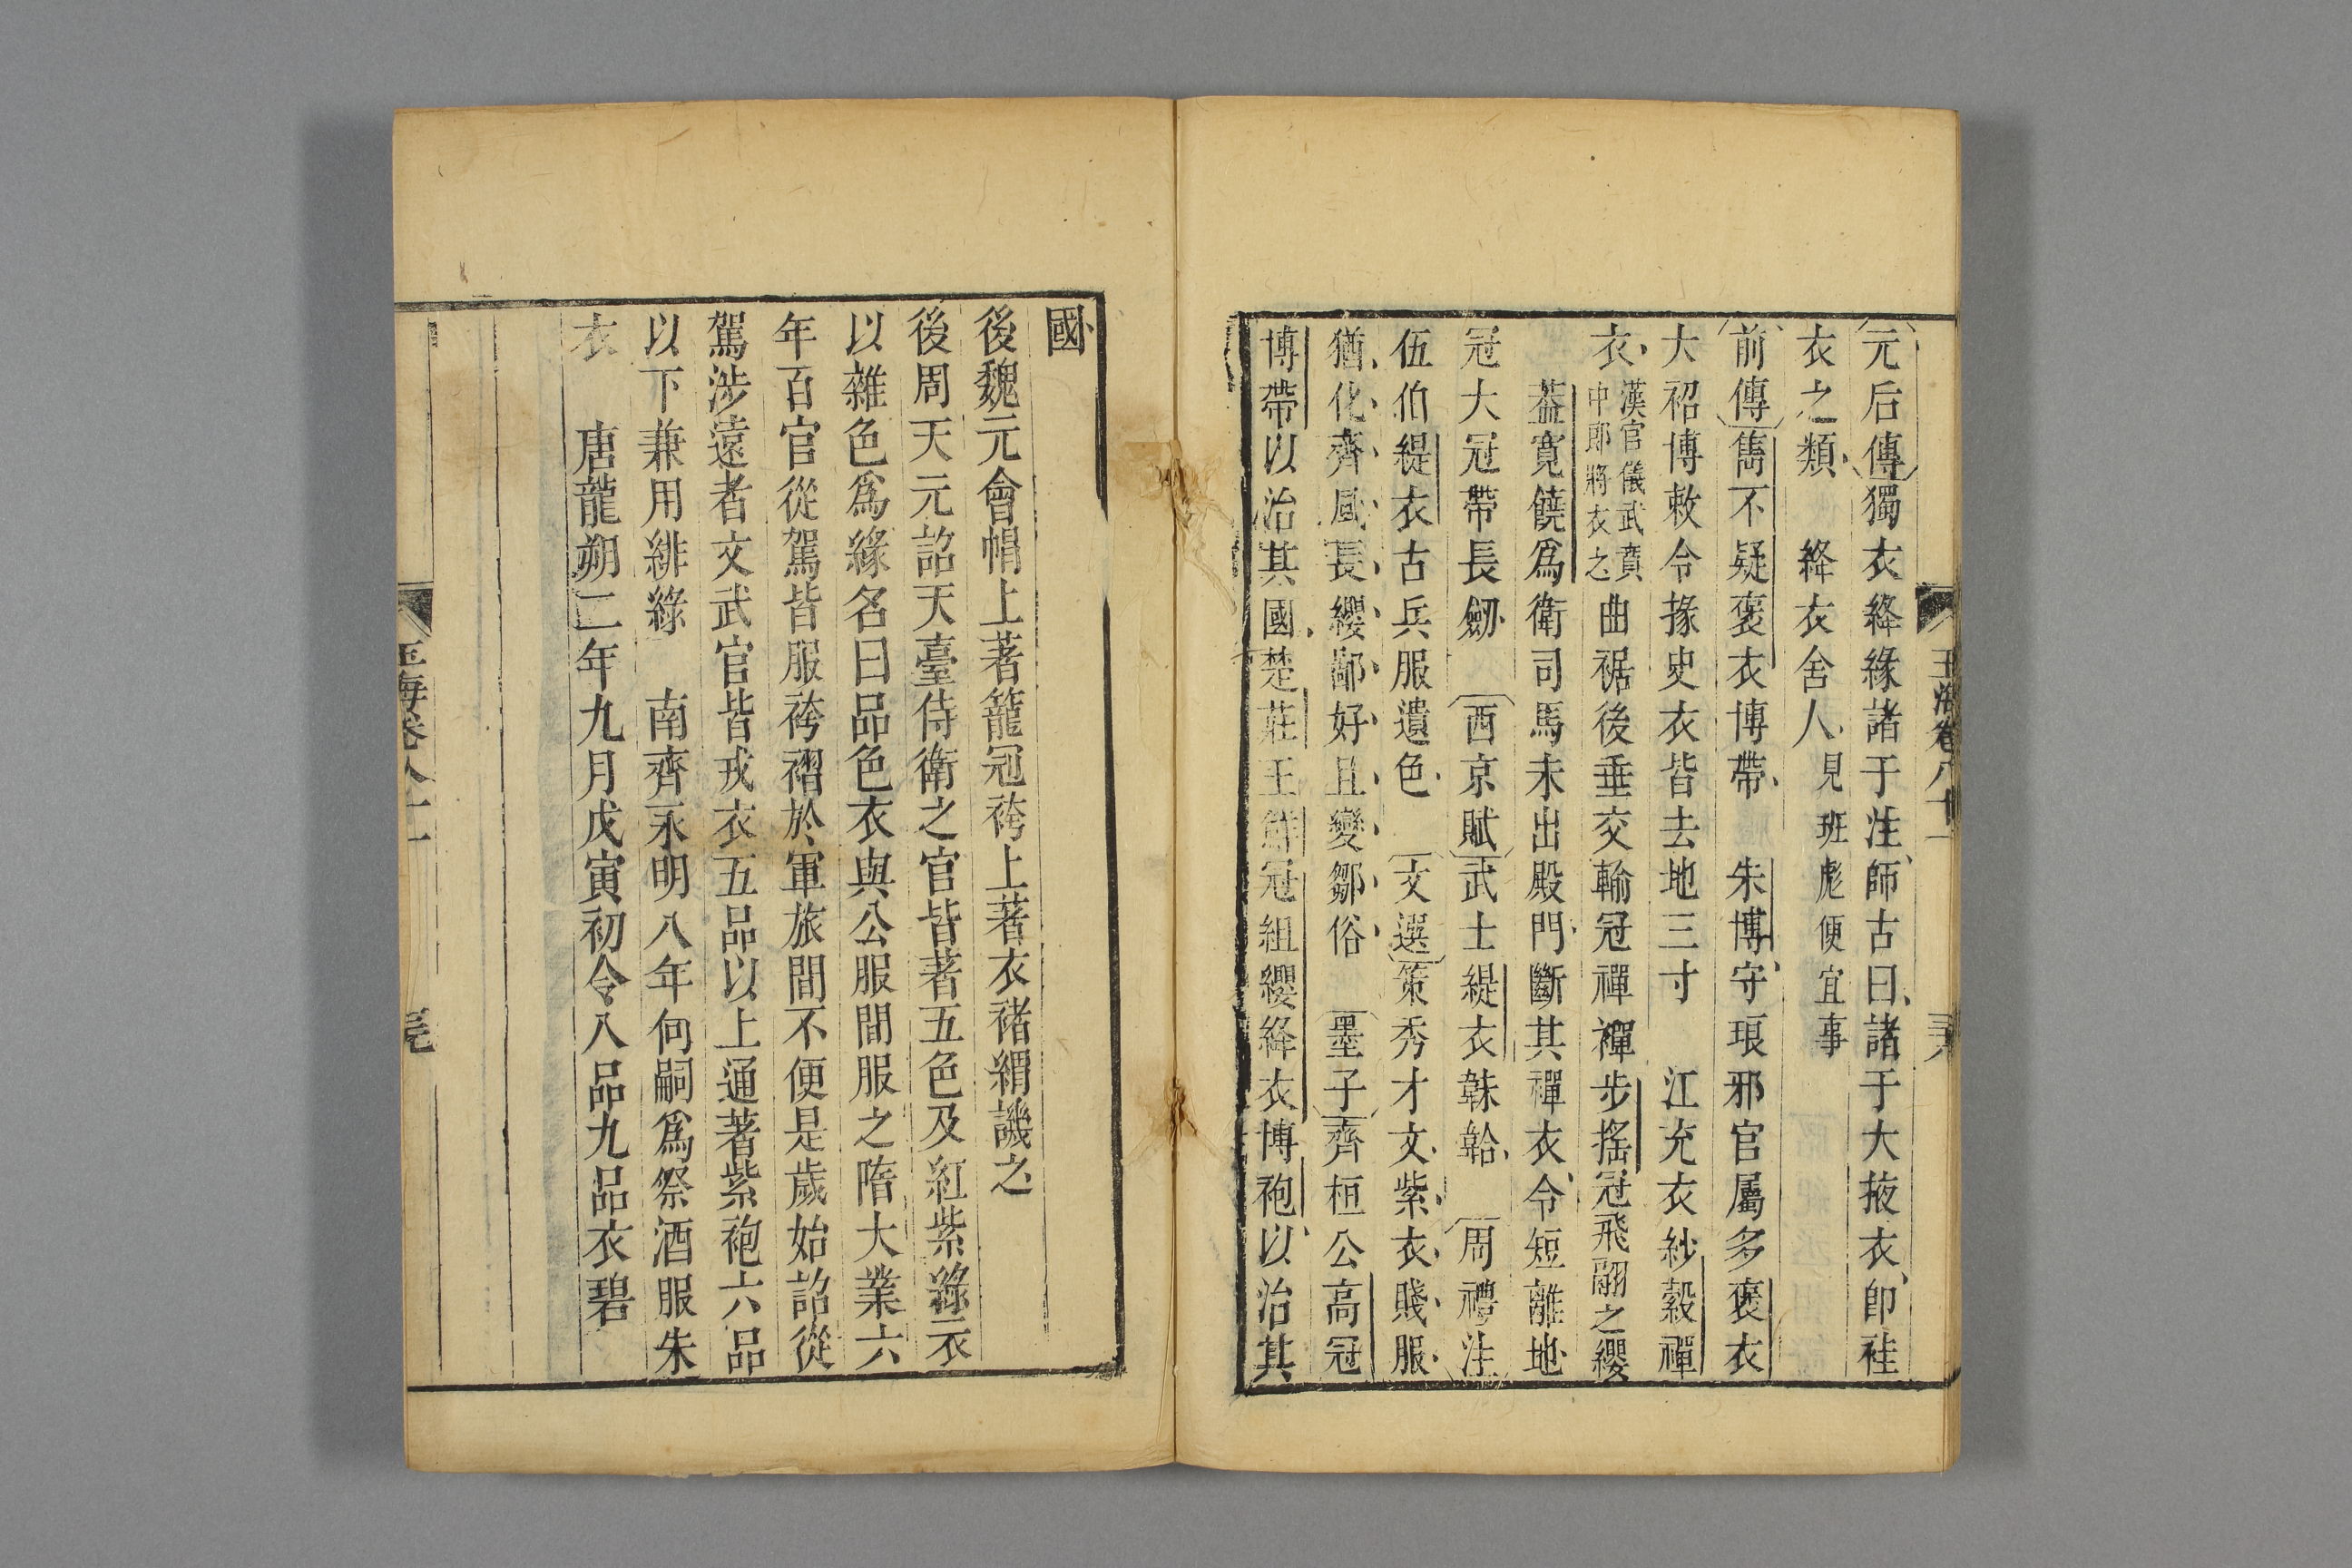 玉海卷八十一
元后傳獨衣絳緣諸于注師古曰諸于大掖衣卽袿
衣之類　絳衣舍人見班彪便宜事
前傳雋不疑褒衣博帶　朱博守琅邪官屬多褒衣
大袑博敕令掾史衣皆去地三寸　江充衣紗縠禪
衣漢官儀武賁中郎將衣之曲裾後垂交輸冠禪襌步搖冠飛翮之纓
蓋寬饒爲衛司馬未出殿門斷其禪衣令短離地
冠大冠帶長劒　西京賦武士緹衣韎韐　周禮注
伍伯緹衣古兵服遺色　文選策秀才文紫衣賤服
猶化齊風長纓鄙好且變鄒俗　墨子齊桓公高冠
博帶以治其國楚莊王鮮冠組纓絳衣博袍以治其
國
後魏元會帩上著籠冠袴上著衣褚緭譏之
後周天元詔天臺侍衛之官皆著五色及紅紫綠衣
以雜色爲緣名曰品色衣與公服間服之隋大業六
年百官從駕皆服袴褶於軍旅間不便是歲始詔從
駕涉遠者文武官皆戎衣五品以上通著紫袍六品
以下兼用緋綠　南齊永明八年何嗣爲祭酒服朱
衣　唐龍朔二年九月戊寅初令八品九品衣碧
玉海卷八十一
尾